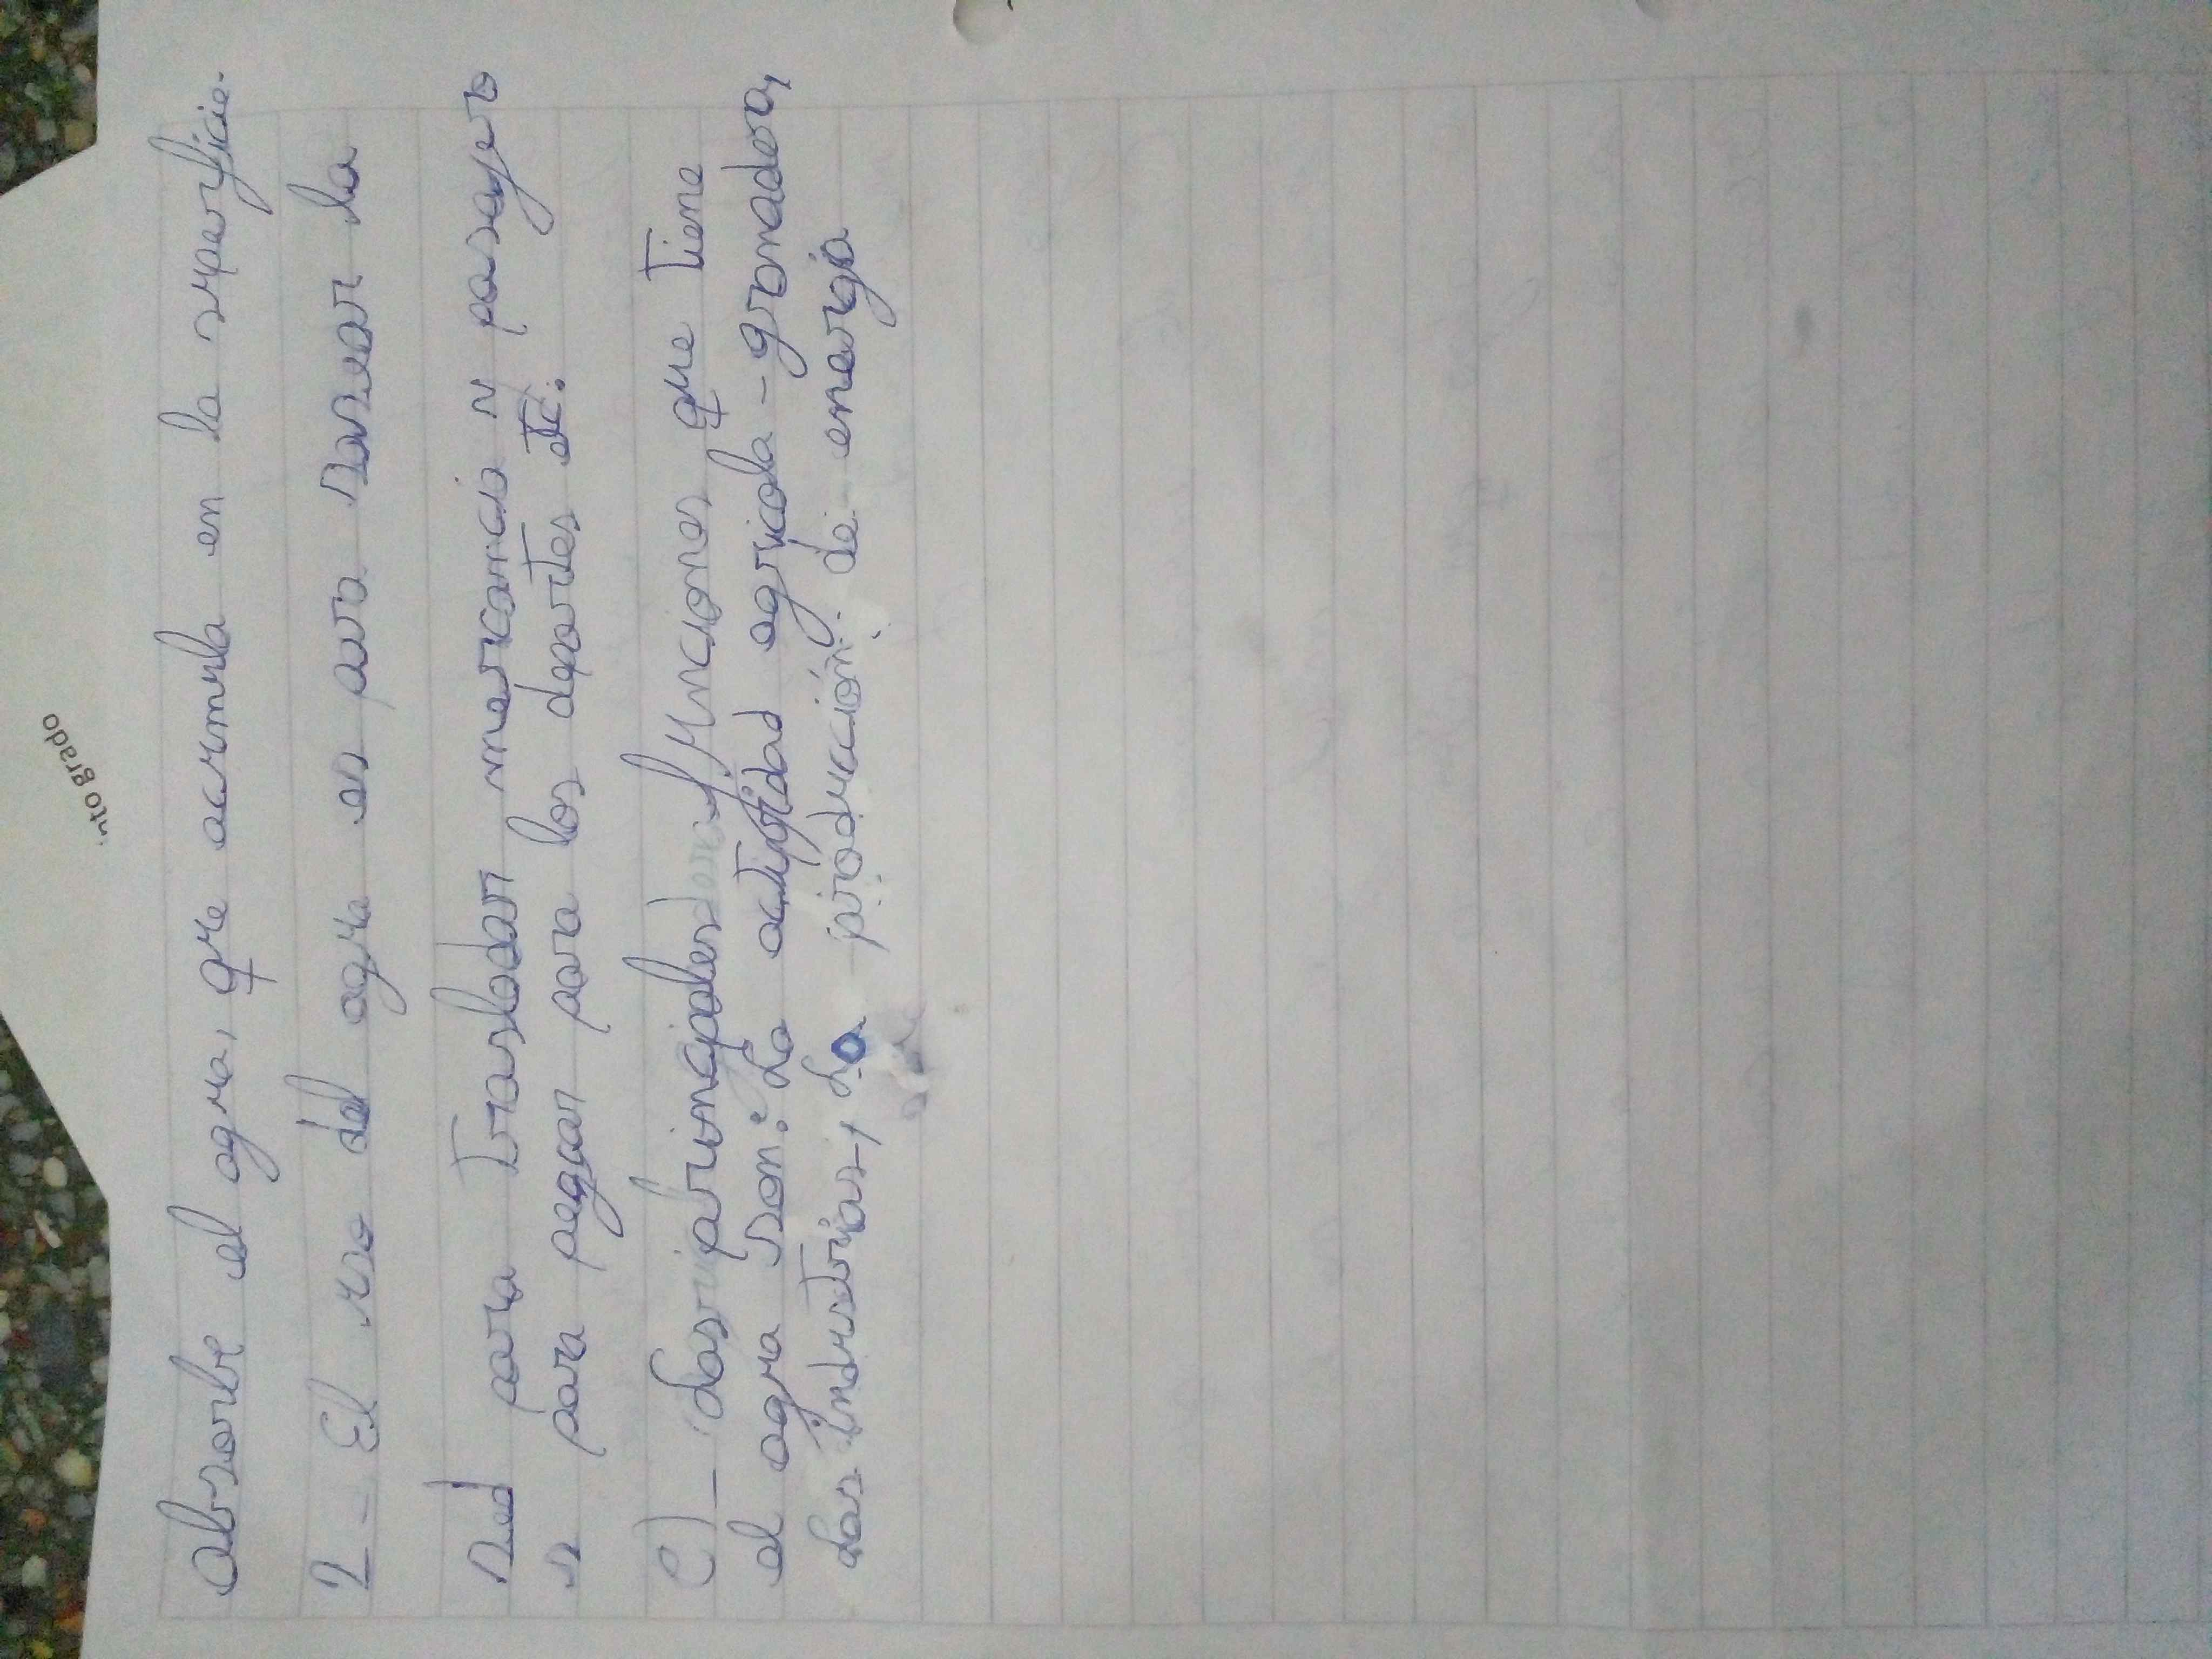 nto grado
absorbe el agua, que acumula en la superficie.
2 - El uso del agua es para sansear la
sed para trasladar mercancia y pasajero
s para pagar para los deportes etc.
C) - las principales funciones que tiene
el agua son: La actividad agricola - granadora,
Las industrias, La producción de energía